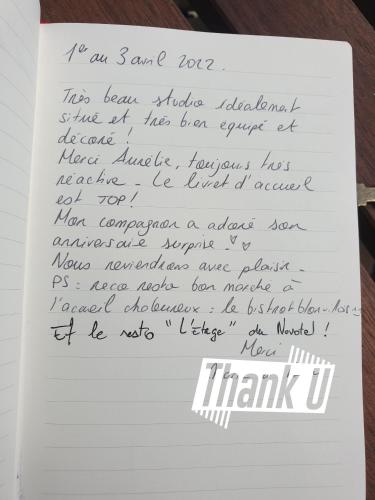 1er au 3 avril 2022.
Très beau studio idéalement
situé et très bien équipé et
décoré !
Merci Aurélie, toujours très
réactive - Le livret d'accueil
est TOP !
Mon compagnon a adoré son
anniversaire surprise.
Nous reviendrons avec plaisir -
PS : reco resto bon marché à
l'accueil chaleureux : le bistrot
Et le resto "L'Etage" du Novotel !
Merci
Thank U